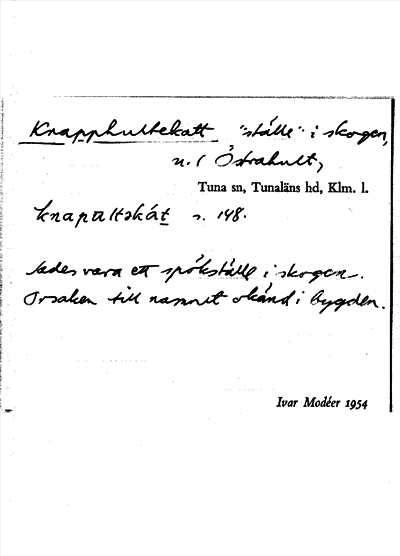 Knapphultekatt "ställe" i skogen,
n. l Östrahult,
Tuna sn, Tunaläns hd, Klm. l.
knapùltskát s. 148.
Sades vara ett spökställe i skogen.
Orsaken till namnet okänd i bygden.
Ivar Modéer 1954